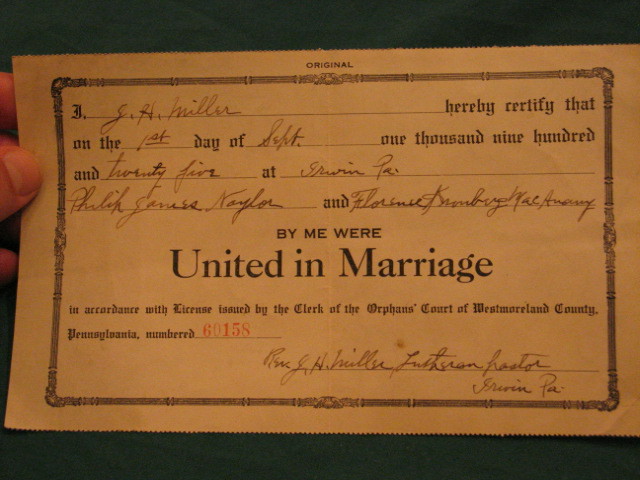 ORIGINAL
I, J. H. Miller hereby certify that
on the 1st day of Sept. one thousand nine hundred
and twenty five at Irwin Pa.
Philip James Naylor and Florence
BY ME WERE
United in Marriage
in accordance with License issued by the Clerk of the Orphans' Court of Westmoreland County,
Pennsylvania, numbered 60158
Rev. J. H. Miller, Lutheran pastor
Irwin Pa.